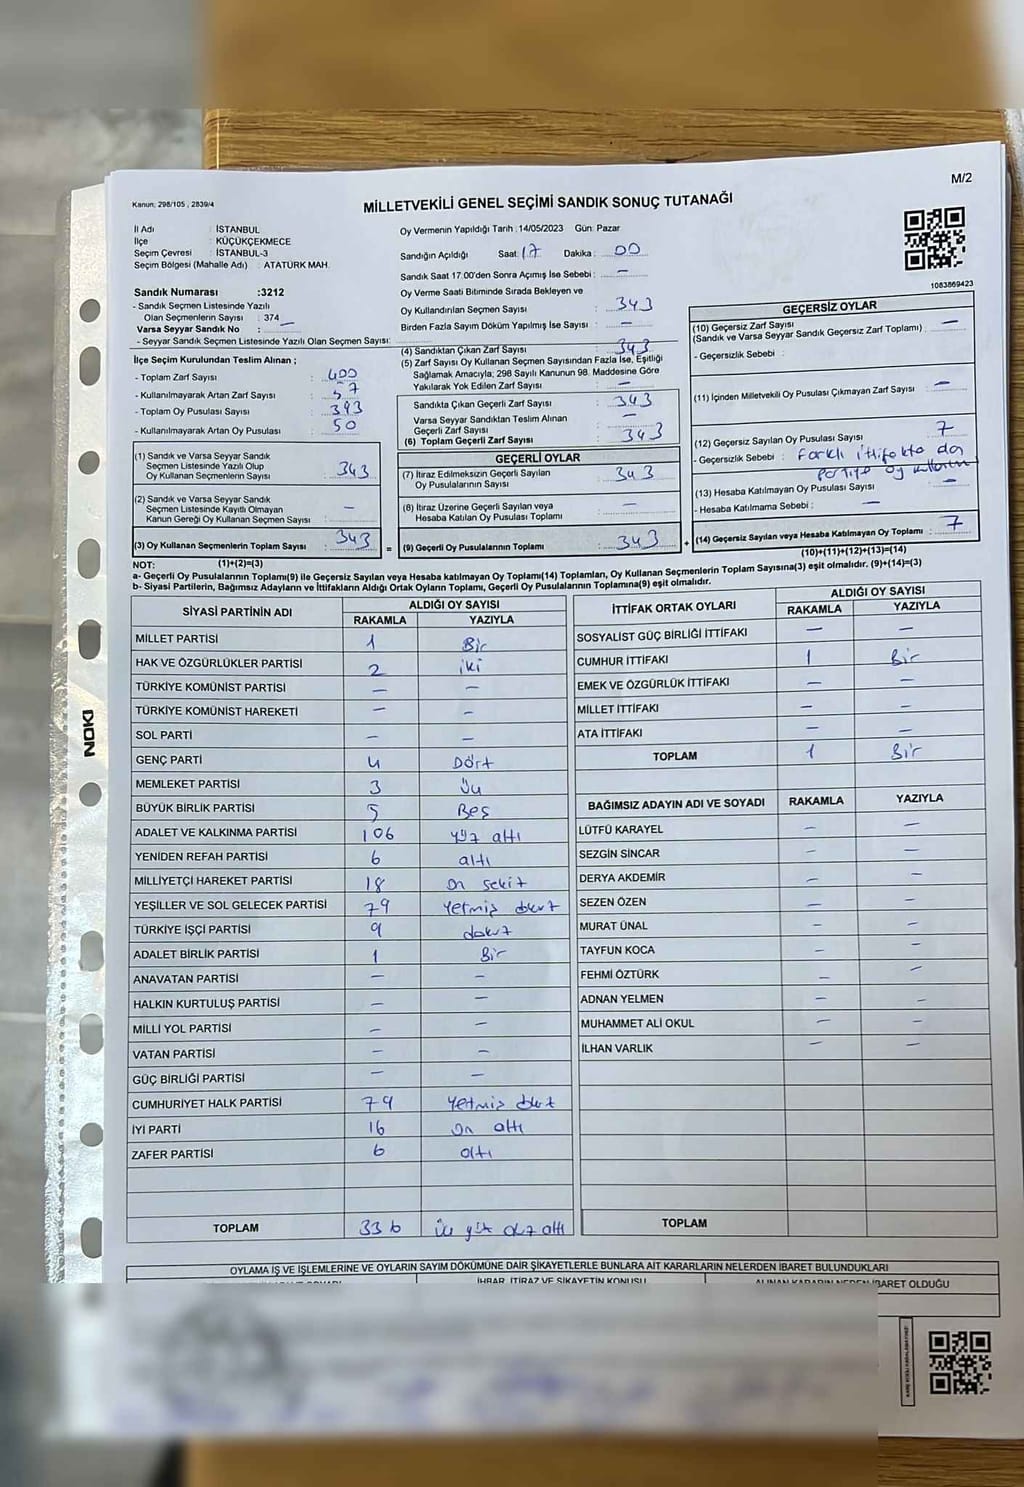 M/2
Kanun: 298/105 , 2839/4
MİLLETVEKİLİ GENEL SEÇİMİ SANDIK SONUÇ TUTANAĞI
İl Adı : İSTANBUL
İlçe : KÜÇÜKÇEKMECE
Seçim Çevresi : İSTANBUL-3
Seçim Bölgesi (Mahalle Adı) : ATATÜRK MAH.
Sandık Numarası :3212
- Sandık Seçmen Listesinde Yazılı
Olan Seçmenlerin Sayısı : 374
Varsa Seyyar Sandık No : —
- Seyyar Sandık Seçmen Listesinde Yazılı Olan Seçmen Sayısı:
İlçe Seçim Kurulundan Teslim Alınan ;
- Toplam Zarf Sayısı : 400
- Kullanılmayarak Artan Zarf Sayısı : 57
- Toplam Oy Pusulası Sayısı : 393
- Kullanılmayarak Artan Oy Pusulası : 50
(1) Sandık ve Varsa Seyyar Sandık
Seçmen Listesinde Yazılı Olup
Oy Kullanan Seçmenlerin Sayısı : 343
(2) Sandık ve Varsa Seyyar Sandık
Seçmen Listesinde Kayıtlı Olmayan
Kanun Gereği Oy Kullanan Seçmen Sayısı : —
(3) Oy Kullanan Seçmenlerin Toplam Sayısı : 343
Oy Vermenin Yapıldığı Tarih :14/05/2023 Gün: Pazar
Sandığın Açıldığı Saat: 17 Dakika : 00
Sandık Saat 17.00'den Sonra Açımış İse Sebebi : —
Oy Verme Saati Bitiminde Sırada Bekleyen ve
Oy Kullandırılan Seçmen Sayısı : 343
Birden Fazla Sayım Döküm Yapılmış İse Sayısı : —
(4) Sandıktan Çıkan Zarf Sayısı : 343
(5) Zarf Sayısı Oy Kullanan Seçmen Sayısından Fazla İse, Eşitliği
Sağlamak Amacıyla; 298 Sayılı Kanunun 98. Maddesine Göre
Yakılarak Yok Edilen Zarf Sayısı : —
Sandıkta Çıkan Geçerli Zarf Sayısı : 343
Varsa Seyyar Sandıktan Teslim Alınan
Geçerli Zarf Sayısı : —
(6) Toplam Geçerli Zarf Sayısı : 343
GEÇERLİ OYLAR
(7) İtiraz Edilmeksizin Geçerli Sayılan
Oy Pusulalarının Sayısı : 343
(8) İtiraz Üzerine Geçerli Sayılan veya
Hesaba Katılan Oy Pusulası Toplamı : —
= (9) Geçerli Oy Pusulalarının Toplamı : 343
1083869423
GEÇERSİZ OYLAR
(10) Geçersiz Zarf Sayısı : —
(Sandık ve Varsa Seyyar Sandık Geçersiz Zarf Toplamı)
- Geçersizlik Sebebi :
(11) İçinden Milletvekili Oy Pusulası Çıkmayan Zarf Sayısı : —
(12) Geçersiz Sayılan Oy Pusulası Sayısı : 7
- Geçersizlik Sebebi : Farklı ittifakta da
partiye oy
(13) Hesaba Katılmayan Oy Pusulası Sayısı : —
- Hesaba Katılmama Sebebi : —
+ (14) Geçersiz Sayılan veya Hesaba Katılmayan Oy Toplamı : 7
NOT: (1)+(2)=(3) (10)+(11)+(12)+(13)=(14)
a- Geçerli Oy Pusulalarının Toplamı(9) ile Geçersiz Sayılan veya Hesaba katılmayan Oy Toplamı(14) Toplamları, Oy Kullanan Seçmenlerin Toplam Sayısına(3) eşit olmalıdır. (9)+(14)=(3)
b- Siyasi Partilerin, Bağımsız Adayların ve İttifakların Aldığı Ortak Oyların Toplamı, Geçerli Oy Pusulalarının Toplamına(9) eşit olmalıdır.
SİYASİ PARTİNİN ADI ALDIĞI OY SAYISI
RAKAMLA YAZIYLA
MİLLET PARTİSİ 1 Bir
HAK VE ÖZGÜRLÜKLER PARTİSİ 2 iki
TÜRKİYE KOMÜNİST PARTİSİ — —
TÜRKİYE KOMÜNİST HAREKETİ — —
SOL PARTİ — —
GENÇ PARTİ 4 Dört
MEMLEKET PARTİSİ 3 Üç
BÜYÜK BİRLİK PARTİSİ 5 Beş
ADALET VE KALKINMA PARTİSİ 106 yüz altı
YENİDEN REFAH PARTİSİ 6 altı
MİLLİYETÇİ HAREKET PARTİSİ 18 on sekiz
YEŞİLLER VE SOL GELECEK PARTİSİ 79 Yetmiş dokuz
TÜRKİYE İŞÇİ PARTİSİ 9 dokuz
ADALET BİRLİK PARTİSİ 1 Bir
ANAVATAN PARTİSİ — —
HALKIN KURTULUŞ PARTİSİ — —
MİLLİ YOL PARTİSİ — —
VATAN PARTİSİ — —
GÜÇ BİRLİĞİ PARTİSİ — —
CUMHURİYET HALK PARTİSİ 79 Yetmiş dokuz
İYİ PARTİ 16 on altı
ZAFER PARTİSİ 6 altı
TOPLAM 336 üç yüz otuz altı
İTTİFAK ORTAK OYLARI ALDIĞI OY SAYISI
RAKAMLA YAZIYLA
SOSYALİST GÜÇ BİRLİĞİ İTTİFAKI — —
CUMHUR İTTİFAKI 1 Bir
EMEK VE ÖZGÜRLÜK İTTİFAKI — —
MİLLET İTTİFAKI — —
ATA İTTİFAKI — —
TOPLAM 1 Bir
BAĞIMSIZ ADAYIN ADI VE SOYADI RAKAMLA YAZIYLA
LÜTFÜ KARAYEL — —
SEZGİN SİNCAR — —
DERYA AKDEMİR — —
SEZEN ÖZEN — —
MURAT ÜNAL — —
TAYFUN KOCA — —
FEHMİ ÖZTÜRK — —
ADNAN YELMEN — —
MUHAMMET ALİ OKUL — —
İLHAN VARLIK — —
TOPLAM
OYLAMA İŞ VE İŞLEMLERİNE VE OYLARIN SAYIM DÖKÜMÜNE DAİR ŞİKAYETLERLE BUNLARA AİT KARARLARIN NELERDEN İBARET BULUNDUKLARI
İHBAR, İTİRAZ VE ŞİKAYETİN KONUSU ALINAN KARARIN NEDEN İBARET OLDUĞU
NOKI